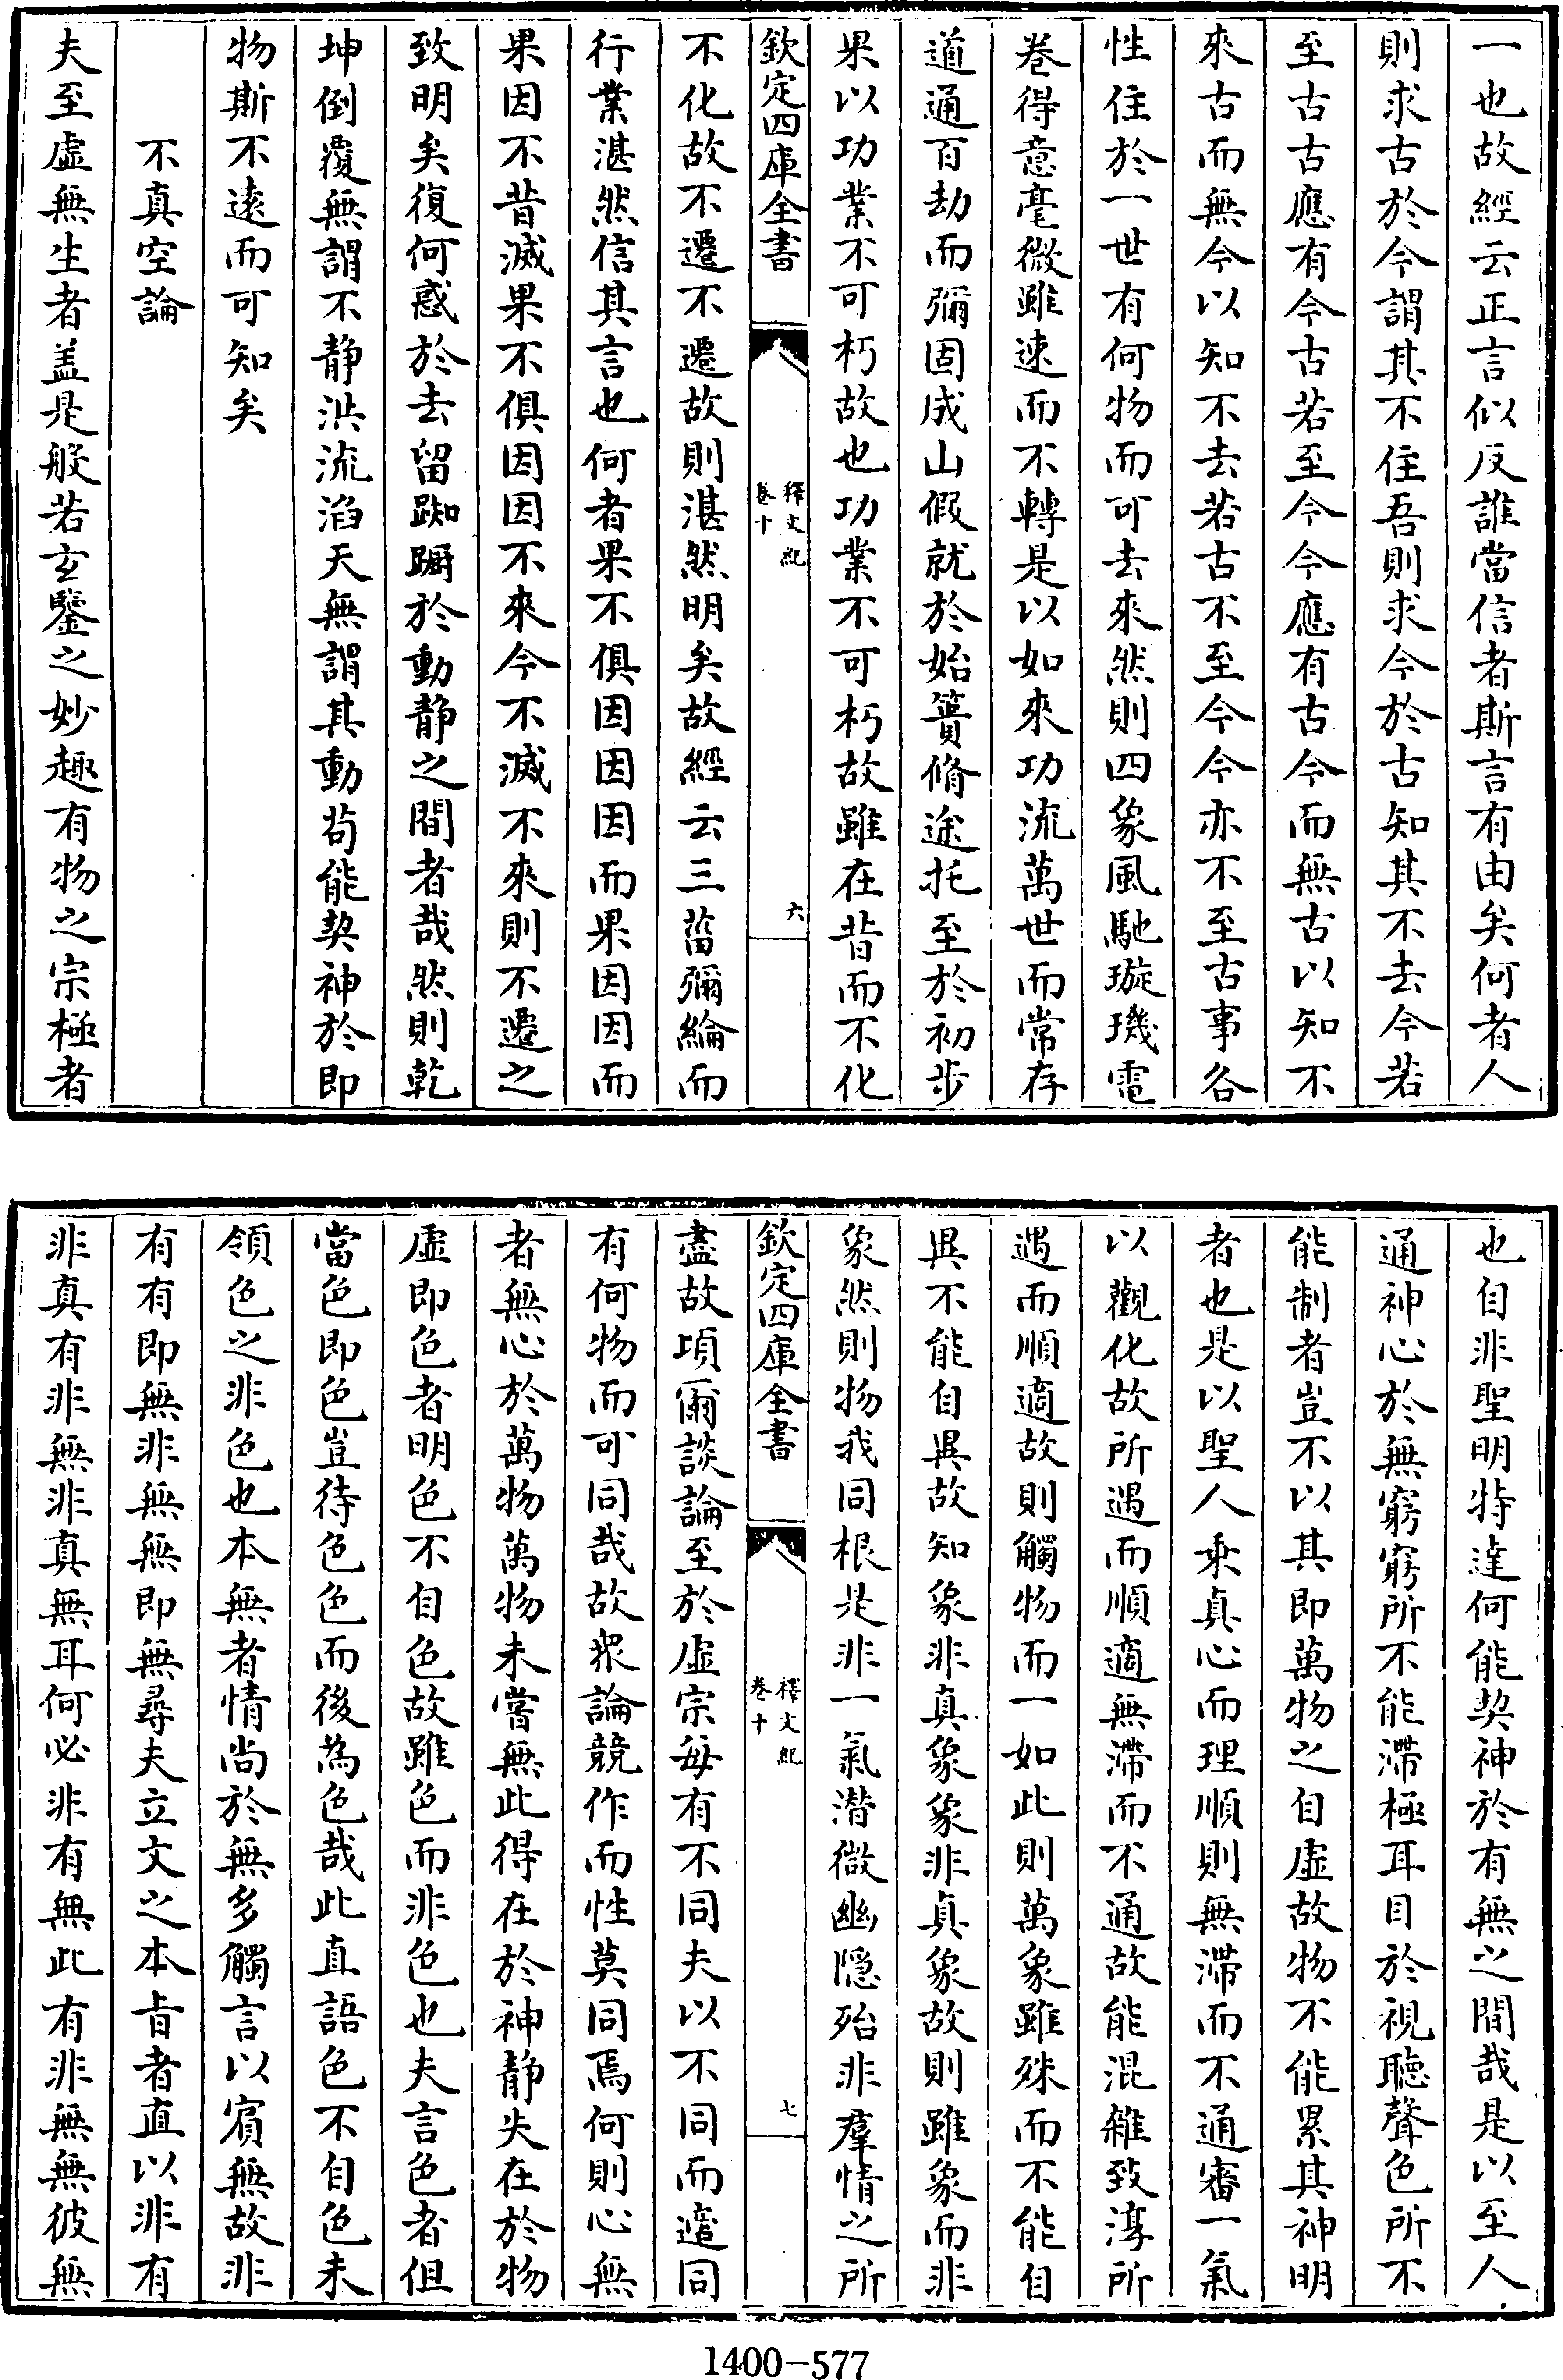 一也故經云正言似反誰當信者斯言有由矣何者人
則求古於今謂其不住吾則求今於古知其不去今若
至古古應有今古若至今今應有古今而無古以知不
來古而無今以知不去若古不至今今亦不至古事各
性住於一世有何物而可去來然則四象風馳璇璣電
卷得意毫微雖速而不轉是以如來功流萬世而常存
道通百劫而彌固成山假就於始簣脩途托至於初步
果以功業不可朽故也功業不可朽故雖在昔而不化
欽定四庫全書
釋文紀
卷十
六
不化故不遷不遷故則湛然明矣故經云三菑彌綸而
行業湛然信其言也何者果不俱因因因而果因因而
果因不昔滅果不俱因因不來今不滅不來則不遷之
致明矣復何惑於去留踟躕於動静之間者哉然則乾
坤倒覆無謂不静洪流滔天無謂其動茍能契神於即
物斯不遠而可知矣
不真空論
夫至虛無生者盖是般若玄鑒之妙趣有物之宗極者
也自非聖明特達何能契神於有無之間哉是以至人
通神心於無窮窮所不能滯極耳目於視聽聲色所不
能制者豈不以其即萬物之自虛故物不能累其神明
者也是以聖人乘真心而理順則無滯而不通審一氣
以觀化故所遇而順適無滯而不通故能混雜致淳所
遇而順適故則觸物而一如此則萬象雖殊而不能自
異不能自異故知象非真象象非真象故則雖象而非
象然則物我同根是非一氣潛微幽隱殆非羣情之所
欽定四庫全書
釋文紀
卷十
七
盡故項爾談論至於虛宗每有不同夫以不同而適同
有何物而可同哉故衆論競作而性莫同焉何則心無
者無心於萬物萬物未嘗無此得在於神静失在於物
虛即色者明色不自色故雖色而非色也夫言色者但
當色即色豈待色色而後為色哉此直語色不自色未
領色之非色也本無者情尚於無多觸言以賓無故非
有有即無非無無即無尋夫立文之本旨者直以非有
非真有非無非真無耳何必非有無此有非無無彼無
1400-577